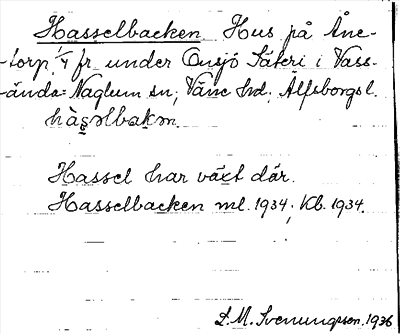 Hasselbacken Hus på Åne-
torp 1/4 fr. under Onsjö Säteri i Vass-
ända-Naglum sn; Väne hd. Älfsborgs l.
hàs̥əlbakɘn.
Hassel har växt där.
Hasselbacken ml. 1934; Kb. 1934.
L. M. Svenungsson. 1936